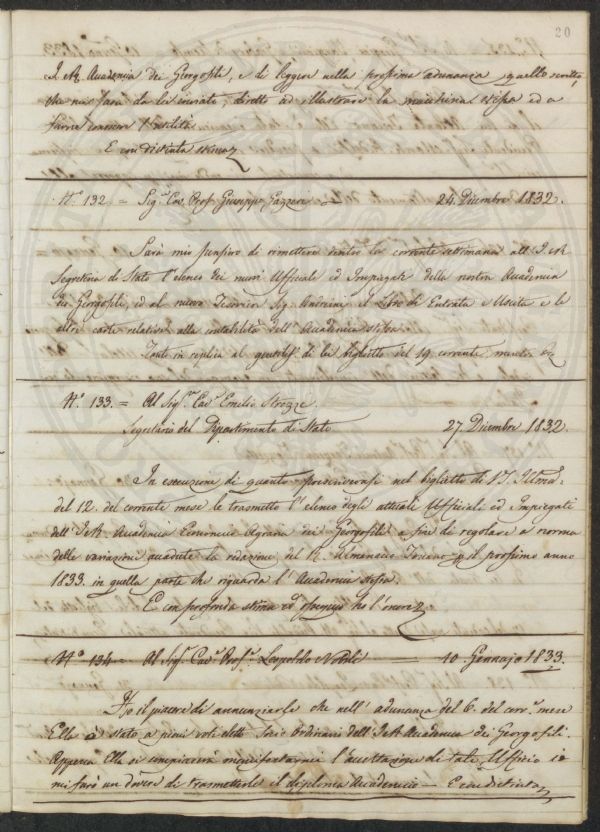 20
I. R. Accademia dei Georgofili, e di leggere nella prossima adunanza quello scritto,
che mi sarà da lei inviato, diretto ad illustrare la macchina stessa ed a
farne conoscere l'utilità
E con distinta stima
N.° 132 = Sig.r Cav. Prof. Giuseppe Gazzeri = 24. Dicembre 1832.
Sarà mio pensiero di rimettere dentro la corrente settimana all' I. e R.
Segreteria di Stato l'elenco dei nuovi Uffiziali ed Impiegati della nostra Accademia
dei Georgofili, ed al nuovo Tesoriere Sig. Andreini il Libro di Entrata e Uscita e le
altre carte relative alla contabilità dell' Accademia stessa.
Tanto in replica al gentiliss.° di lei biglietto del 19. corrente, mentre
N.° 133. = Al Sig.re Cav.r Emilio Strozzi.
Segretario del Dipartimento di Stato 27 Dicembre 1832.
In esecuzione di quanto prescrivevasi nel biglietto di V. S. Illma.
del 12. del corrente mese le trasmetto l'elenco degli attuali Uffiziali ed Impiegati
dell' I. e R. Accademia Economico Agraria dei Georgofili a fine di regolare a norma
delle variazioni accadute la redazione del R. Almanacco Toscano p. il prossimo anno
1833. in quella parte che riguarda l'Accademia stessa.
E con profonda stima ed ossequio ho l'onore
N.° 134 = Al Sig.r Cav.r Prof.r Leopoldo Nobili 10 Gennajo 1833.
Ho il piacere di annunziarle che nell' adunanza del 6. del corr.e mese
Ella è stato a pieni voti eletto Socio Ordinario dell' I. e R. Accademia dei Georgofili.
Appena Ella si compiacerà manifestarmi l'accettazione di tale Uffizio io
mi farò un dovere di trasmetterle il diploma Accademico = E con distinta